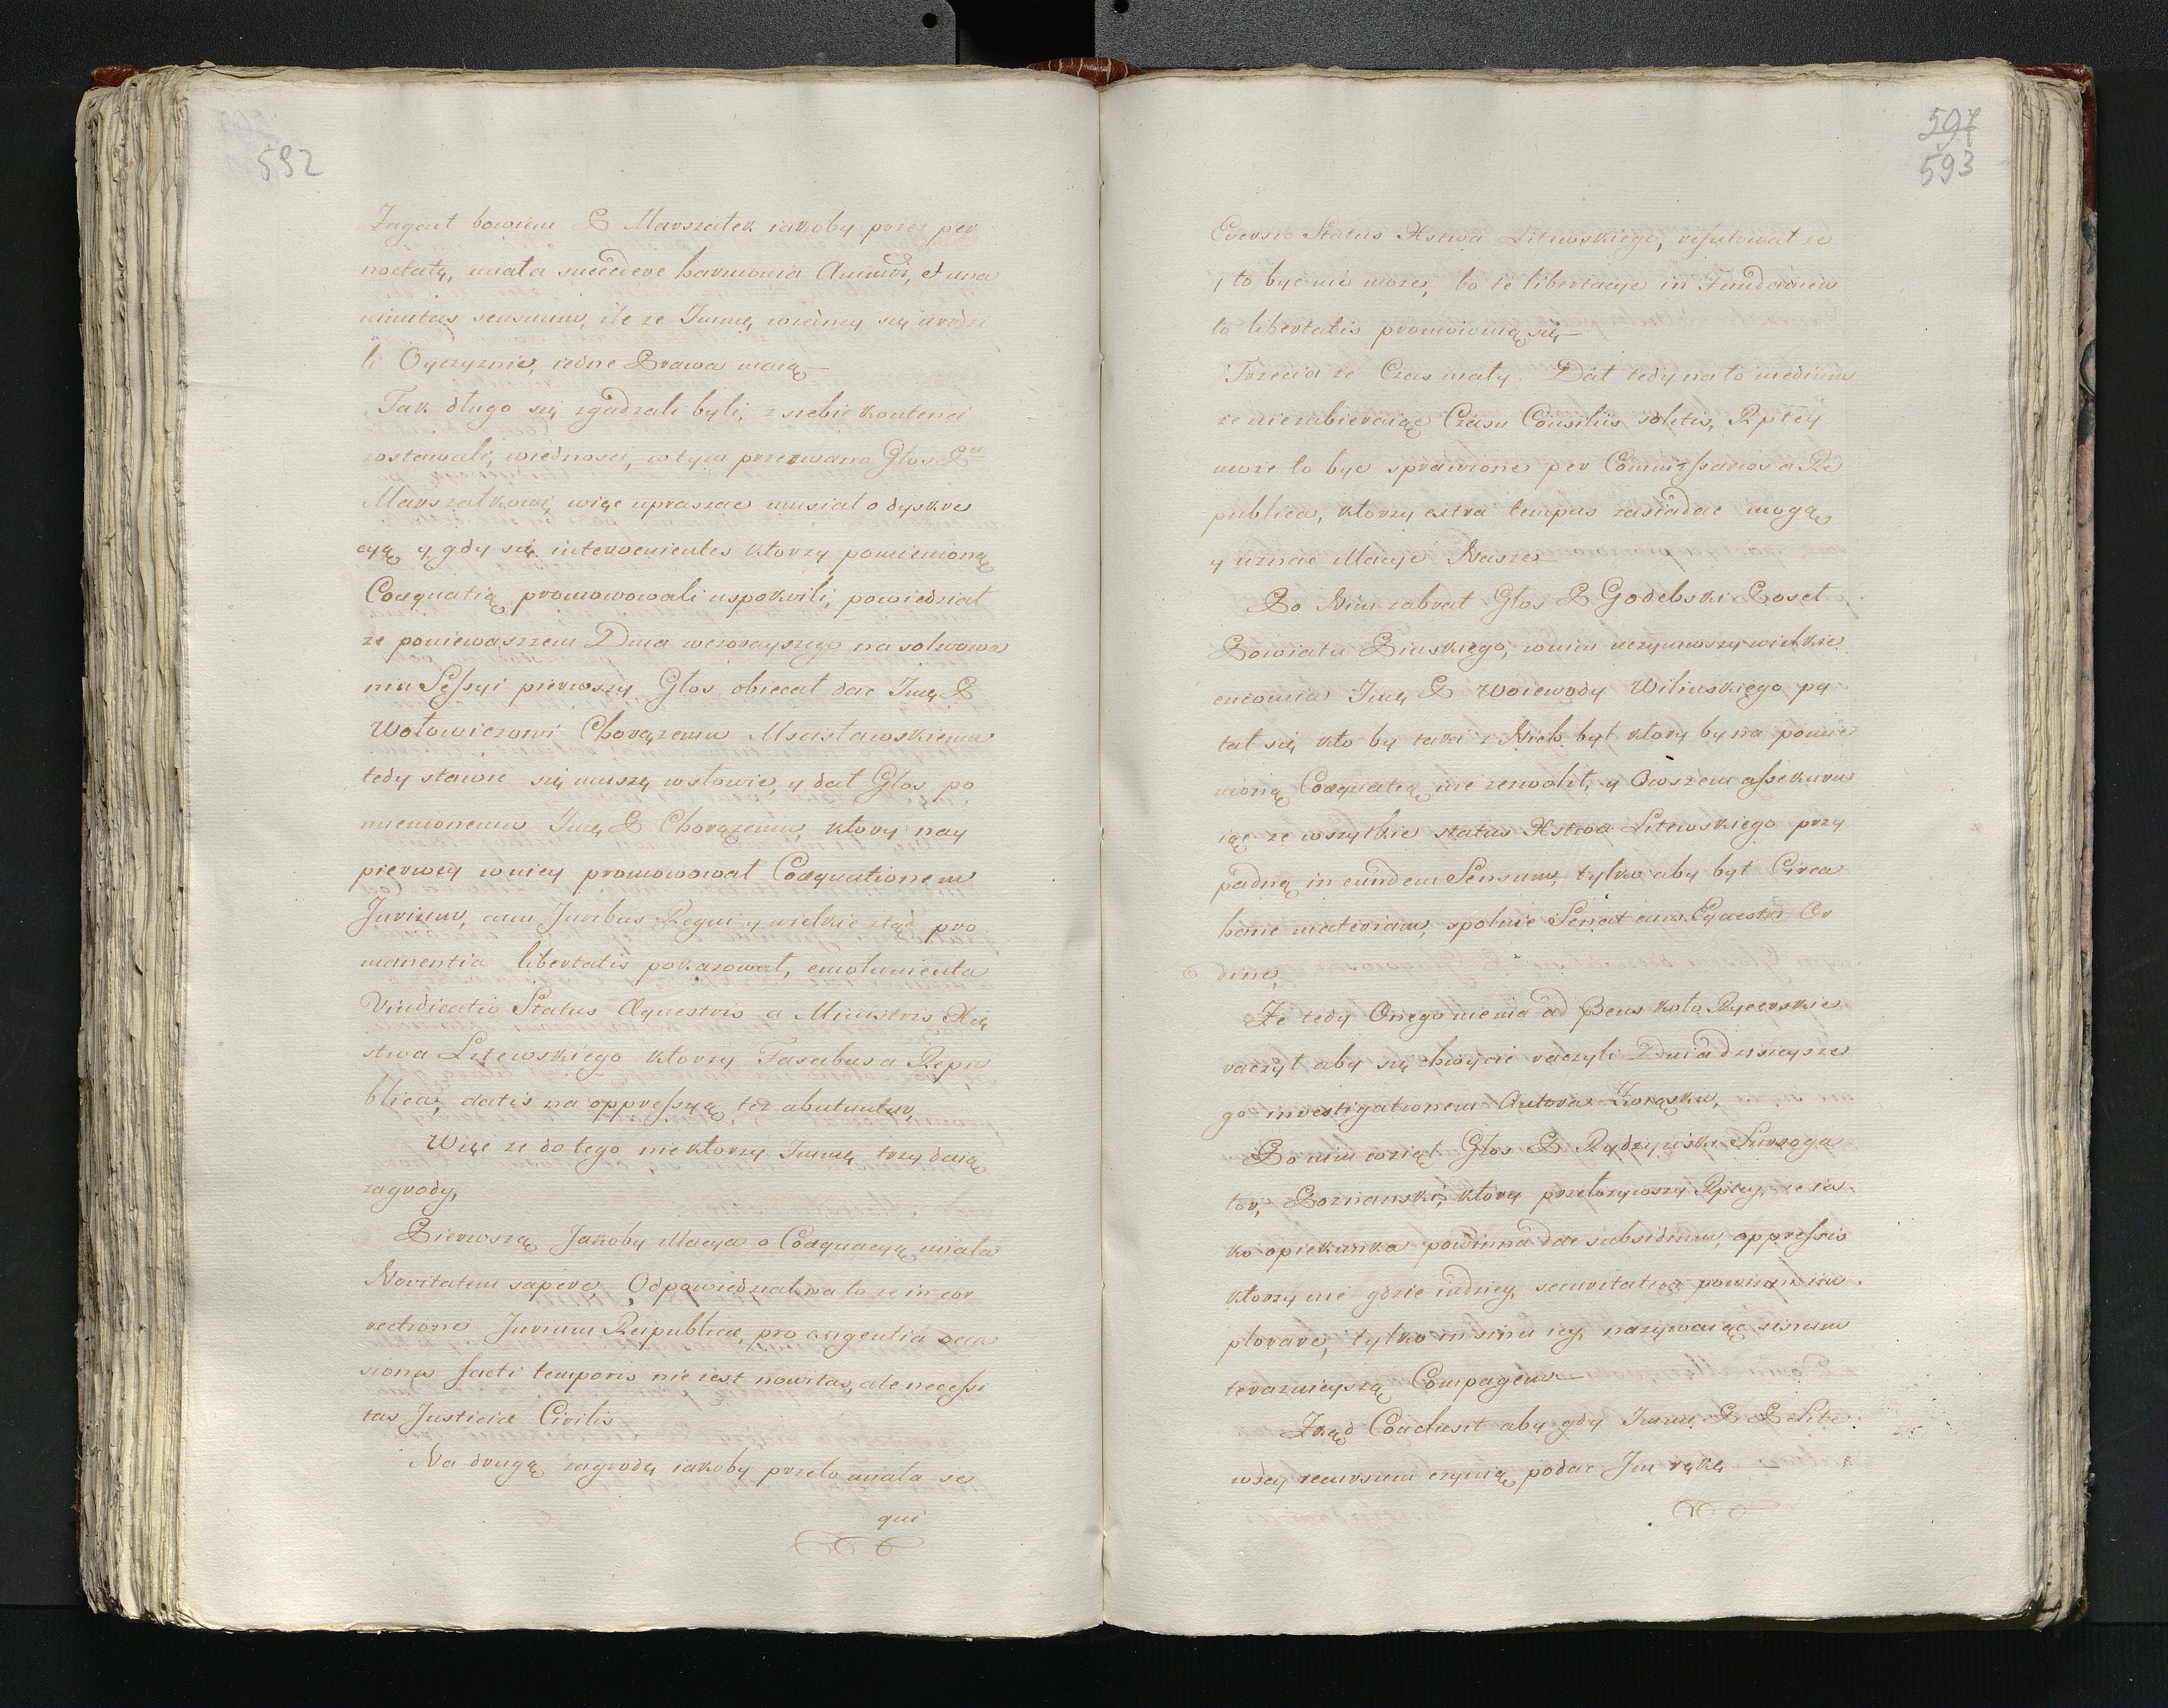 592
Zagaił bowiem P Marszałek iakoby przez per
noctatę, miała succedere harmonia Animor, et una
nimitas sensuum, ile ze Imię, wiedney się urodzi
li Oyczyznie, iedne Prawa maią
Tak długo się zgadzali byli, z siebie kontenci
zostawali, wiednosci, wtym przerwano Głos P
Marszałkowi, więc upraszac musiał o dyskre
cyą y gdy się intervenientes ktorzy pomienioną
Coæquatią promowowali uspokoili, powiedział
ze poniewaszem Dnia wczorayszego na solwowa
niu Sessyi pierwszy Głos obiecał dac Imę P
Wołowiczowi Chorązemu Mscisławskiemu
tedy stawic się muszę wsłowie, y dał Głos po
mienionemu Imę P Chorązemu, ktory nay
pierwey wniey promowował Coæquationem
Jurium, cum Juribus Regni y wielkie ztąd pro
manentia libertatis pokazował, emolumenta
Vindicatio Status Equestris a Ministris Xię
stwa Litewskiego ktorzy Fascibus a Repu
blica, datis na oppressyą tez abutuntur,
Więc ze do tego niektorzy Immę trzy daią
zagrody,
Pierwszą Jakoby Macya o Coæquacyą miała
Novitatem sapere, Odpowiedział na to ze in cor
rectione Jurium Reipublicæ, pro exigentia occa
sionis facti temporis nie iest nowitas, ale necessi
tas Justiciæ Civilis
Na drugą zagrodę iakoby przeto miała se
qui
597
593
Eversio Status Xstwa Litewskiego, refutował ze
y to byc nie moze, bo te libertacye in Fundamen
to libertatis promowiuą się
Trzecia ze Czas mały. Dał tedy na to medium
ze niezabieraiąc Czasu Consiliis solitis, Rptey
moze to byc sprawione per Commissarios a Re
publica, ktorzy extra tempus zasiadac mogą
y uznac Macye Nasze
Po Nim zabrał Głos P Godebski Poseł
Powiatu Pinskiego, wnim uczyniwszy wielkie
encomia Imę P Woiewody Wilinskiego py
tał się kto by taki z Nich był ktory by na pomie
nioną Coæquatią nie zezwolił, y Owszem assekuru
iąc ze wszytkie status Xstwa Litewskiego przy
padną in eundem Sensum, tylko aby był Circa
hanc materiam, spolnie Senat cum Equestri Or
dine,
Ze tedy Onego niema ad Pens koło Rycerskie
raczył aby się chwycic raczyli Dnia dzisieysze
go investigationem Autora Zorasku,
Po nim wziął Głos P Rydzynski Surroga
tor, Poznanski, ktory przełozywszy Rptey, ze ia
ko opiekunka powinna dac subsidium, oppressis
ktorzy nie gdzie indziey, securitatem powinni im
plorare, tylko in sinu iey, nazywaiąc sinum
teraznieyszą Compagem
Ztąd Conclusit aby gdy Immę P P Lite
wscy recursum czynią podac Im rękę